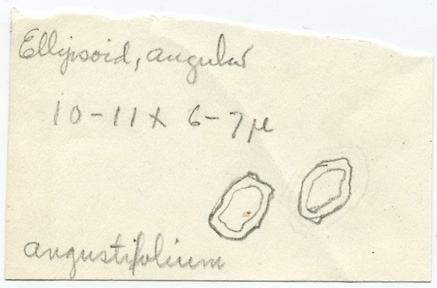 Ellipsoid, angular
10-11 x 6-7 µ
angustifolium